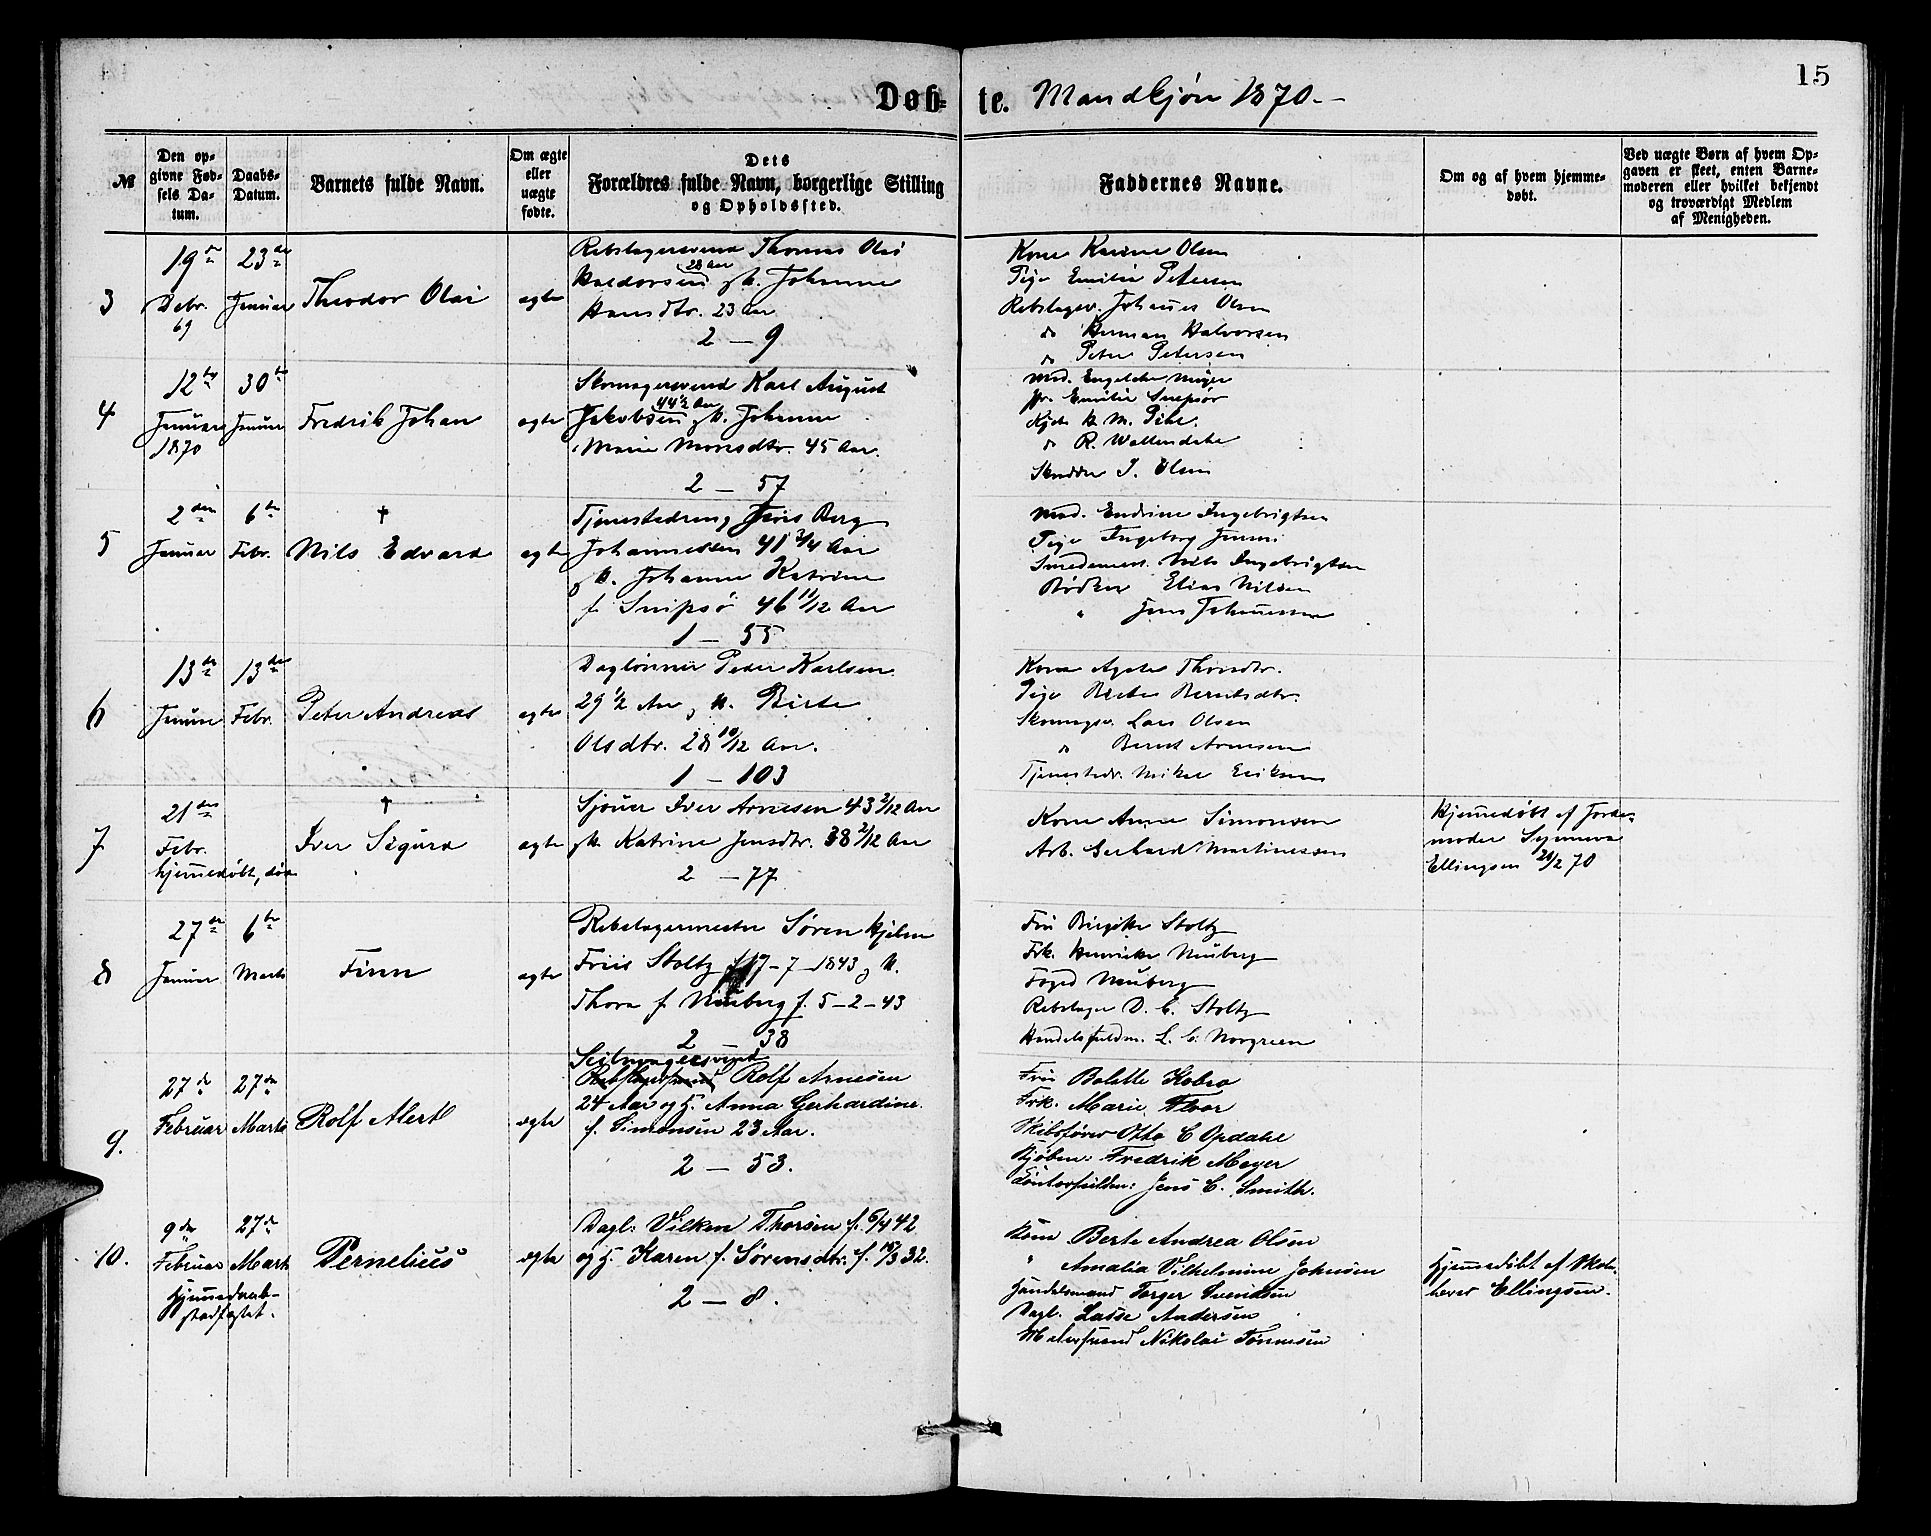 15
Døb- te. Mandkjøn 1870.-
№
Den op-
givne Fød-
sels Da-
tum.
Daabs-
Datum.
Barnets fulde Navn.
Om ægte
eller
uægte
fødte.
Dets
Forældres fulde Navn, borgerlige Stilling
og Opholdssted.
Faddernes Navne.
Om og af hvem hjemme-
døbt.
Ved uægte Børn af hvem Op-
gaven er skeet, enten Barne-
moderen eller hvilket bekjendt
og troværdigt Medlem
af Menigheden.
3
19de
Debr.
69
23de
Januar
Theodor Olai
ægte
Rebslagersvend Thomas Olai
28 Aar
Haldorsen og H. Johanne
Hansdtr. 23 Aar
2 - 9
Kone Karine Olsen
Pige Emilie Petersen
Rebslagersv. Johannes Olsen
do Herman Halvorsen
do Peter Petersen
4
12te
Januar
1870
30te
Januar
Fredrik Johan
ægte
Skomagersvend Karl August
44 1/2 Aar
Jakobsen og H. Johanne
Marie Monsdtr. 45 Aar.
2 - 57
Mad. Engelche Meyer
Fr. Emilie Snipsør
Kjøb. H. M. Pihl.
do R. Wallendahl
Skrædder J. Olsen
5
2den
Januar
6te
Febr.
†
Nils Edvard
ægte
Tjenestedreng Jens Berg
Johannessen 41 3/4 Aar
og H. Johanne Katrine
f. Snipsø 46 11/12 Aar
1 - 55
Mad. Endrine Ingebrigtsen
Pige Ingeborg Jenni
Smedemest. Nils Ingebrigtsen
Bødker Elias Nilsen
" Jens Johannessen
6
13de
Januar
13de
Febr.
Peter Andreas
ægte
Daglønner Peder Karlsen
29 1/2 Aar og H. Birte
Olsdtr. 28 10/12 Aar.
1 - 103
Kone Agate Thorsdtr.
Pige Berte Berntsdtr.
Skomagsv. Lars Olsen
do Bernt Arnesen
Tjenestedr. Mikel Eriksen
7
21de
Febr.
hjemmedøbt, død
†
Iver Sigurd
ægte
Sjouer Iver Arnesen 43 2/12 Aar
og H. Katrine Jensdtr. 38 2/12 Aar
2 - 77
Kone Anne Simonsen
Arb. Gerhard Martinessen
Hjemmedøbt af Jorde-
moder Synneva
Ellingsen 21/2 70
8
27de
Januar
6te
Marts
Finn
ægte
Rebslagermester Søren Hjelm
Friis Stoltz f. 17-7-1843 og H.
Thora f. Neuberg f. 5-2-43
2 - 38
Fru Birgitte Stoltz
Frk. Henrikke Neuberg
Foged Neuberg
Rebslager D. C. Stoltz
Handelsfuldm. L. C. Norgreen
9.
27de
Februar
27de
Marts
Rolf Alert
ægte
Seilmagersvend
Rebslagersvend Rolf Arnesen
24 Aar og H. Anna Gerhardine
f. Simonsen 23 Aar.
2 - 53.
Fru Bolette Kobro
Frk. Marie Floor
Skibsfører Otto C Opdahl
Kjøbm: Fredrik Meyer
Jens C. Smith.
10.
9de
Februar
27de
Marts
Hjemmedaab
stadfæstet.
Pernelius
ægte
Dagl: Vilken Thorsen f. 6/4 42
og H. Karen f. Sørensdtr. f. 15/3 32.
2 - 8.
Kone Berte Andrea Olsen
" Amalia Vilhelmine Johnsen
Handelsmand Torger Svendsen
Dagl. Lasse Andersen
Malersvend Nikolai Tønnesen
Hjemmedøbt af Skol-
lærer Ellingsen.